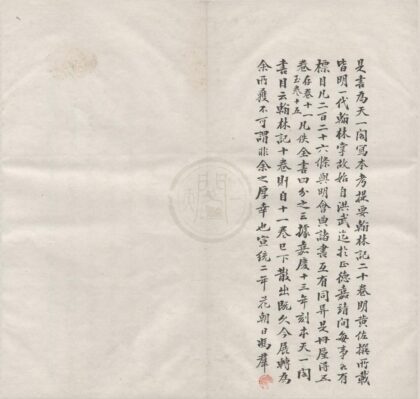 是書為天一閣寫本考提要翰林記二十卷明黃佐撰所載
皆明一代翰林掌故始自洪武迄於正德嘉靖間每事各有
標目凡二百二十六條與明會典諸書互有同異是冊僅得五
卷存卷十一至卷十五凡佚全書四分之三據嘉慶十三年刻本天一閣
書目云翰林記十卷則自十一卷已下散出既久今展轉為
余所獲不可謂非余之厚幸也宣統二年花朝日馮羣